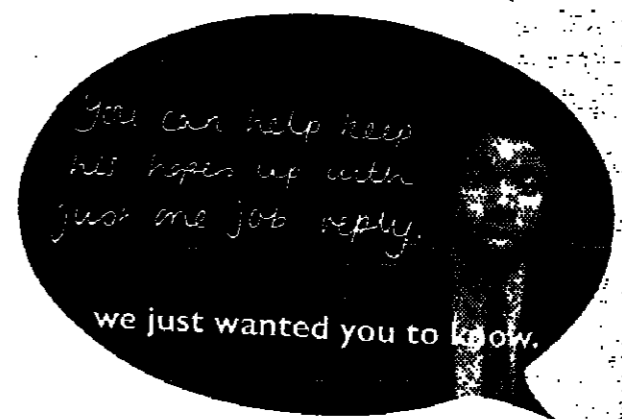 You can help keep
hopes up with
just one job reply.
we just wanted you to know.